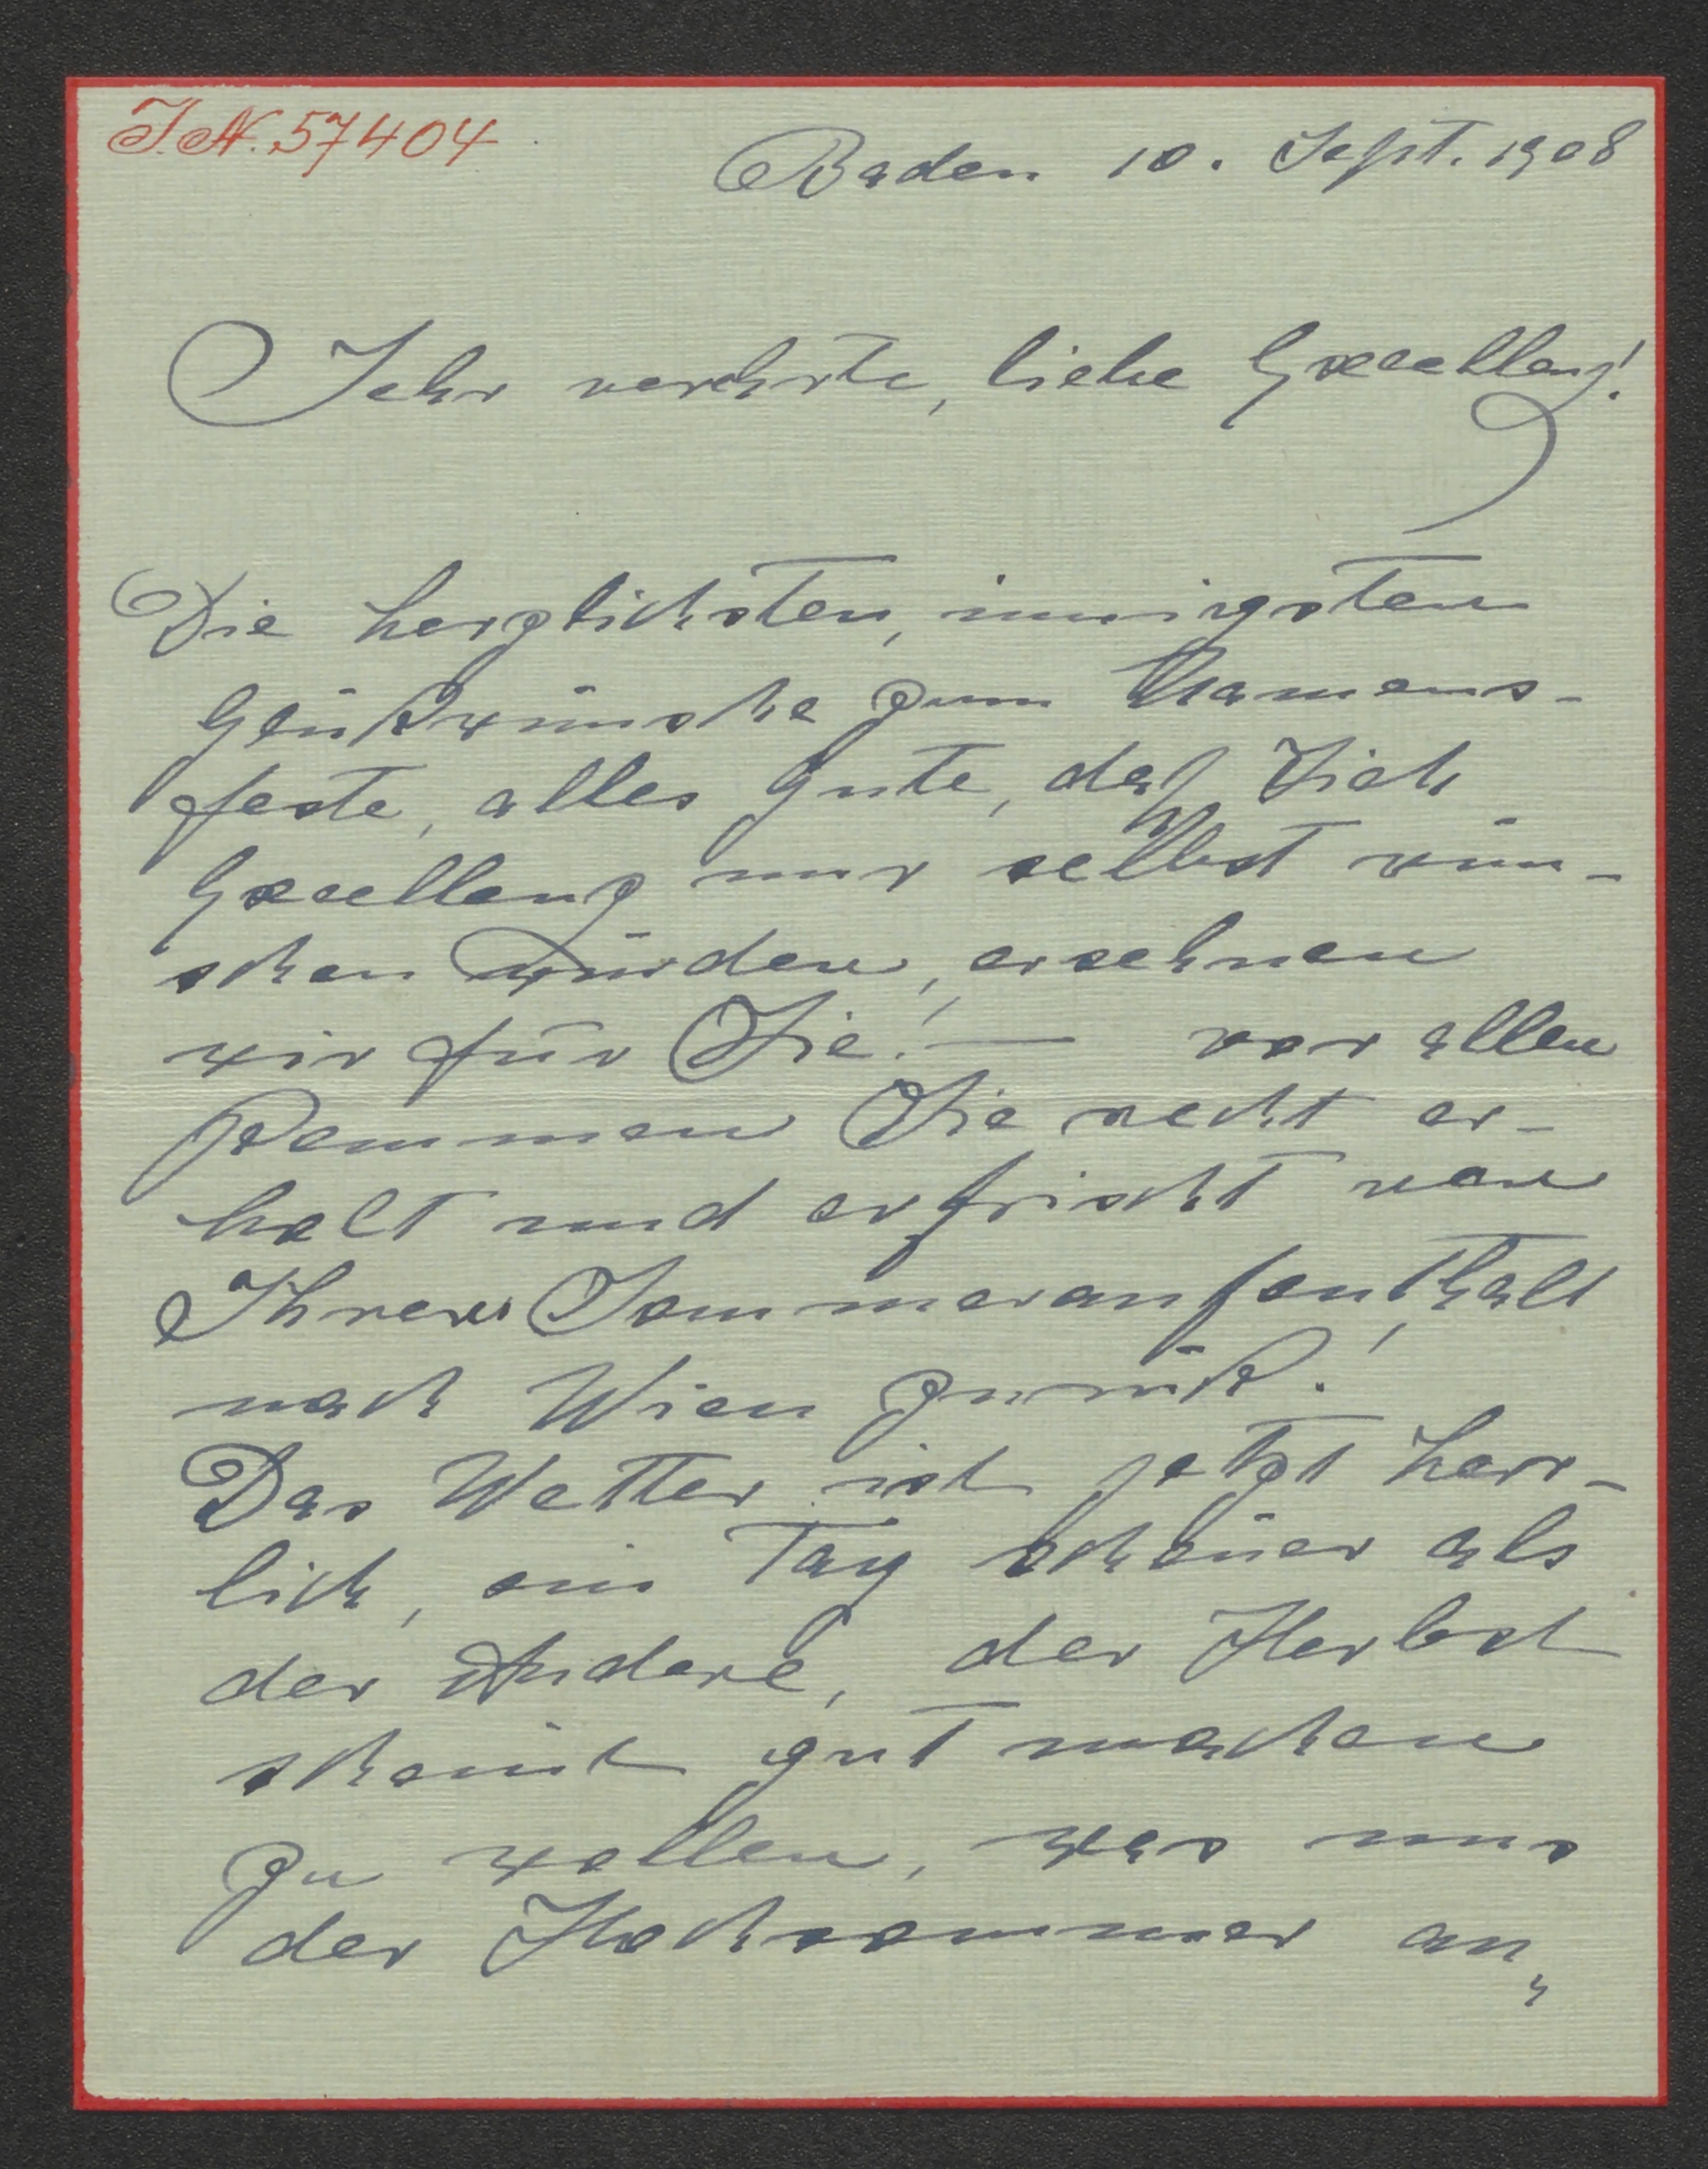 I.N. 57404
Baden 10. Sept. 1908
Sehr verehrte, liebe Excellenz!
Die herzlichsten, innigsten
Glückwünsche zum Namens-
feste, alles Gute, daß Sich
Excellenz nur selbst wün-
schen würden, ersehnen
wir für Sie! — vor allen
kommen Sie recht er-
holt und erfrischt von
Ihren Sommeraufenthalt
nach Wien zurück!
Das Wetter ist jetzt herr-
lich, ein Tag schöner als
der Andere, der Herbst
scheint gut machen
zu wollen, was uns
der Hochsommer an,